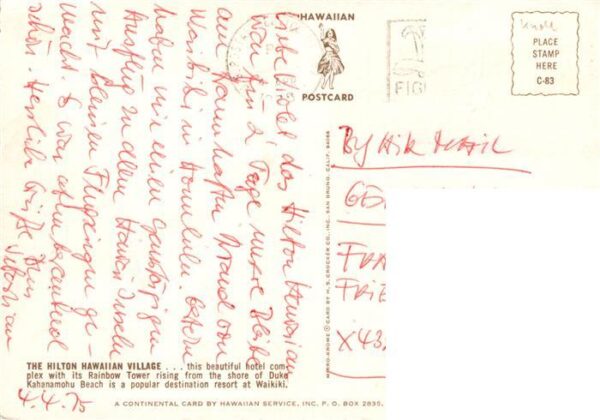 HAWAIIAN
POSTCARD
PLACE
STAMP
HERE
C-83
FIG
das Hilton Hawaiian
war für 2 Tage unsere Bleibe
am traumhaften Strand von
Waikiki in Honolulu. Gestern
haben wir einen ganztägigen
Ausflug zu allen Hawaii Inseln
mit kleinen Flugzeugen ge-
macht. Es war atemberaubend
schön. Herzliche Grüße
Sebastian
THE HILTON HAWAIIAN VILLAGE . . . this beautiful hotel com-
plex with its Rainbow Tower rising from the shore of Duke
Kahanamohu Beach is a popular destination resort at Waikiki.
4.4.75
A CONTINENTAL CARD BY HAWAIIAN SERVICE, INC. P. O. BOX 2835,
MIRRO-KROME ® CARD BY H. S. CROCKER CO., INC. SAN BRUNO, CALIF. 94066
By Air Mail
GE
FRA
FRIE
X43